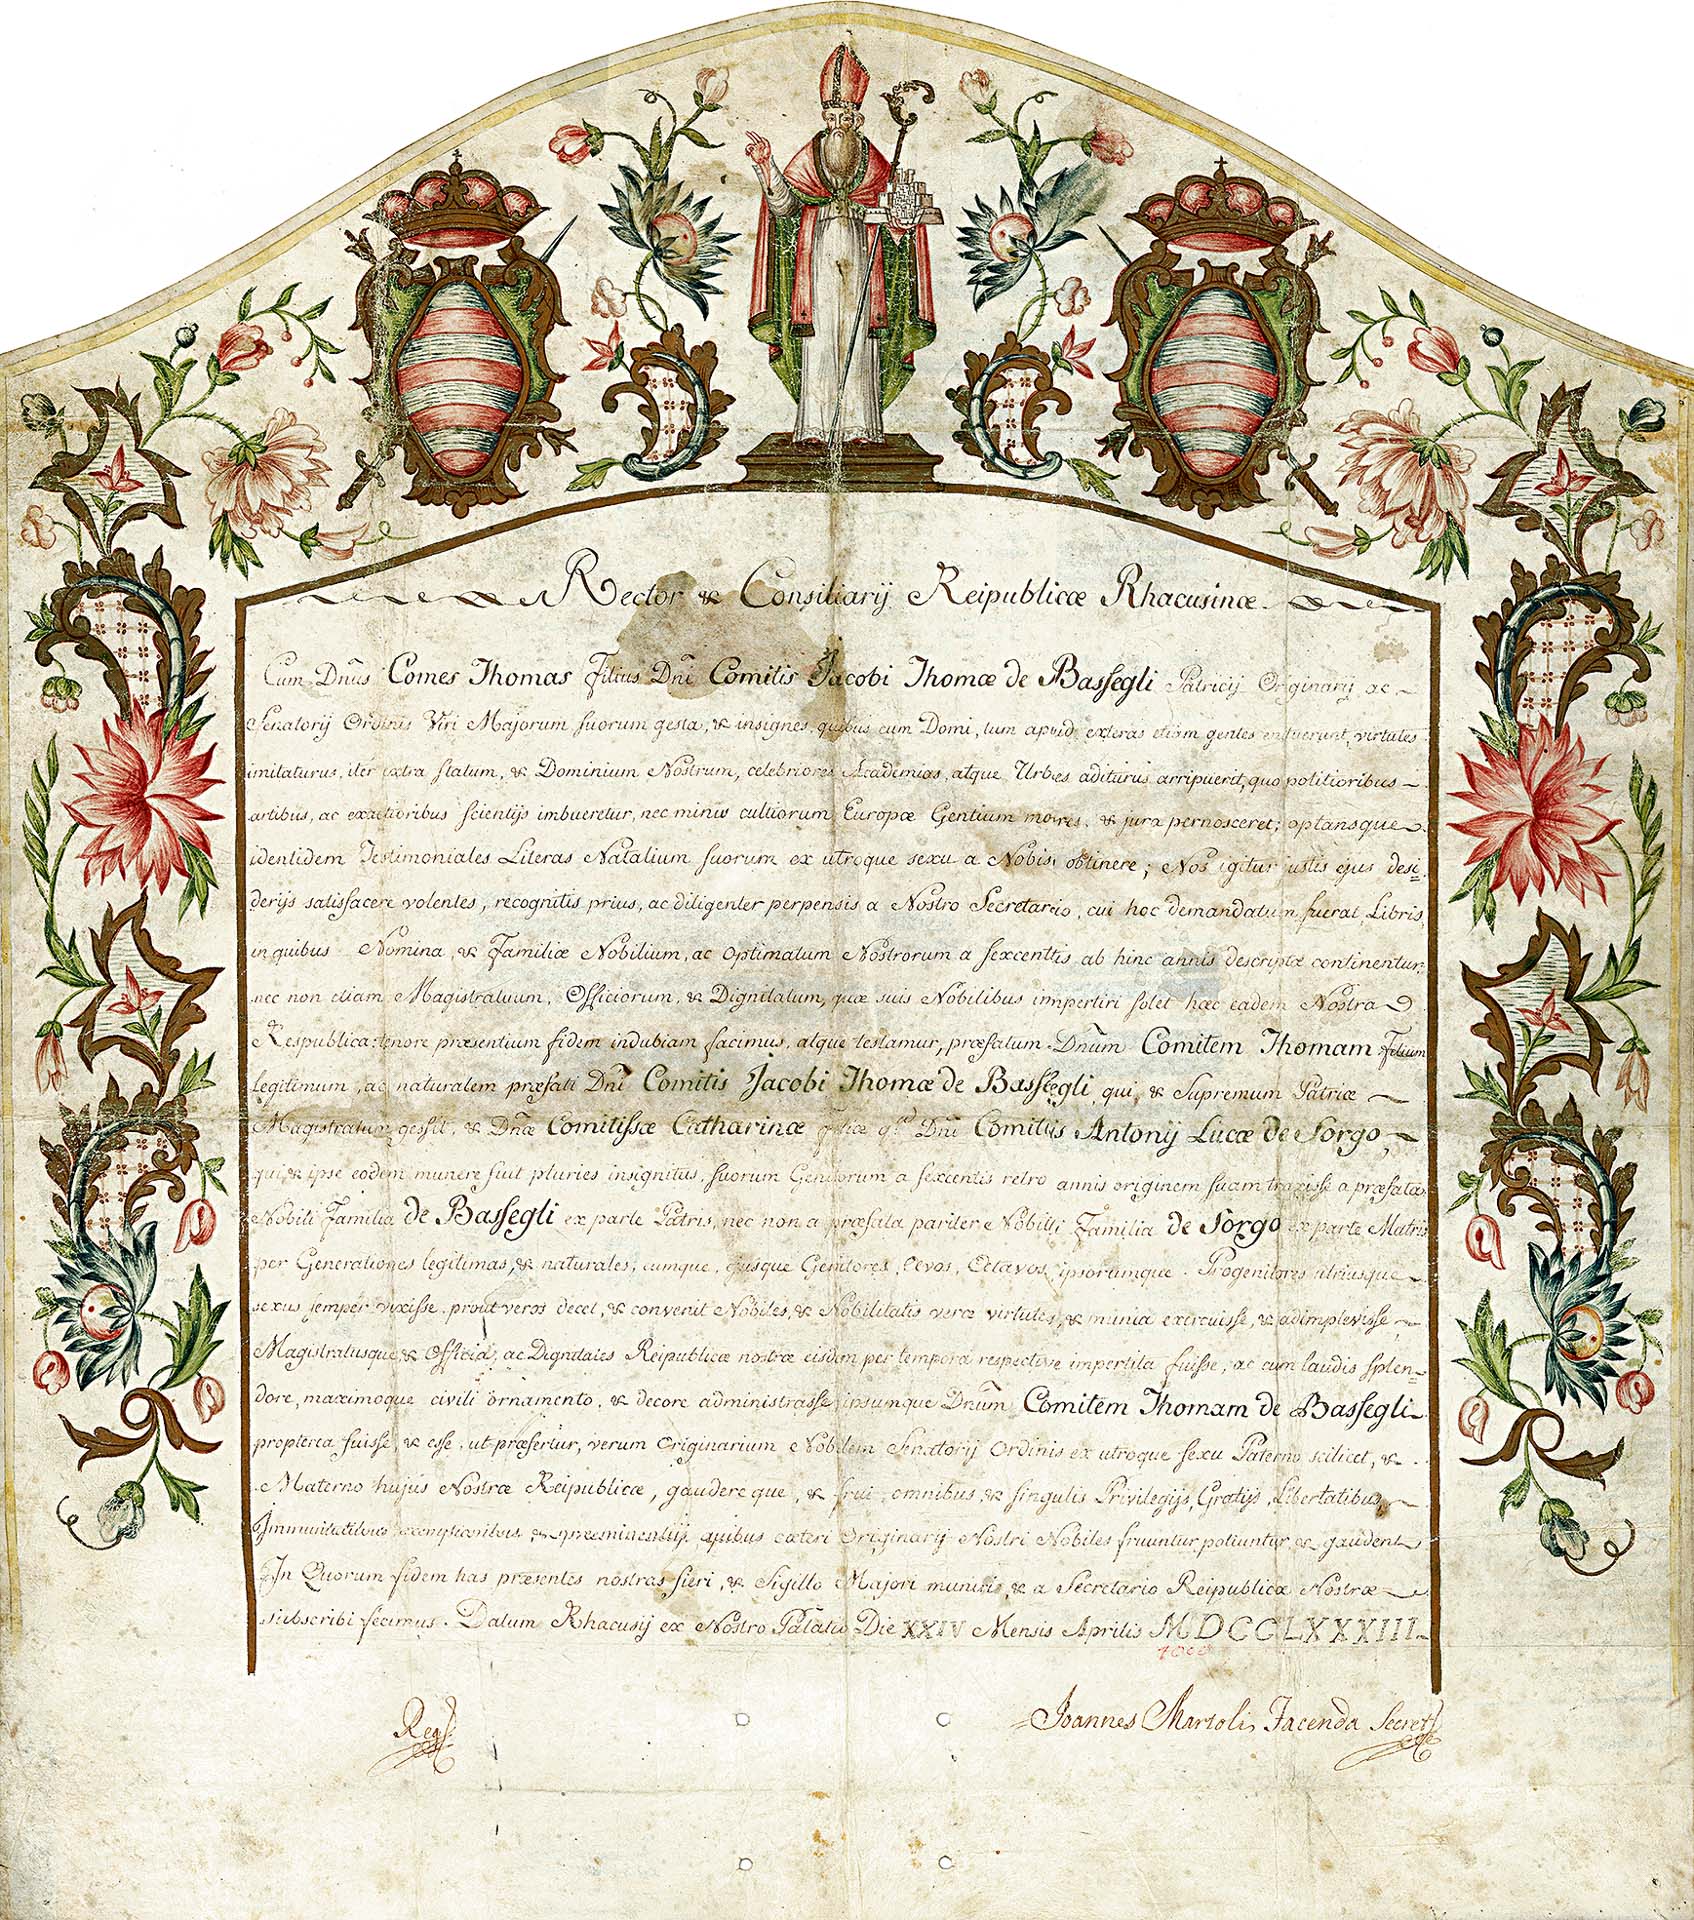 Rector & Consiliarij Reipublicæ Rhacusinæ.
Cum Dn̄us Comes Thomas Filius Dn̄i Comitis Jacobi Thomæ de Bassegli Patricij Originarij ac
Senatorij Ordinis Viri Majorum suorum gesta, & insignes, quibus cum Domi, tum apud exteras etiam gentes enituerunt, virtutes
imitaturus, iter extra statum, & Dominium Nostrum, celebriores Academias, atque Urbes aditurus arripuerit, quo politioribus
artibus, ac exactioribus scientijs imbueretur, nec minus cultiorum Europæ Gentium mores, & jura pernosceret; optansque
identidem Testimoniales Literas Natalium suorum ex utroque sexu a Nobis obtinere; Nos igitur justis ejus desi=
derijs satisfacere volentes, recognitis prius, ac diligenter perpensis a Nostro Secretario, cui hoc demandatum fuerat, Libris,
in quibus Nomina, & Familiæ Nobilium, ac Optimatum Nostrorum a sexcentis ab hinc annis descriptæ continentur,
nec non etiam Magistratuum, Officiorum, & Dignitatum, quæ suis Nobilibus impertiri solet hæc eadem Nostra
Respublica: tenore præsentium fidem indubiam facimus, atque testamur, præfatum Dn̄um Comitem Thomam Filium
legitimum, ac naturalem præfati Dn̄i Comitis Jacobi Thomæ de Bassegli, qui, & Supremum Patriæ
Magistratum gessit, & Dn̄æ Comitissæ Catharinæ filiæ qm̄ Dn̄i Comitis Antonij Lucæ de Sorgo,
qui, & ipse eodem munere fuit pluries insignitus, suorum Genitorum a sexcentis retro annis originem suam traxisse a præfata
Nobili Familia de Bassegli ex parte Patris, nec non a præfata pariter Nobili Familia de Sorgo ex parte Matris
per Generationes legitimas, & naturales, eumque, ejusque Genitores, Avos, Atavos, ipsorumque Progenitores utriusque
sexus semper vixisse, prout veros decet, & convenit Nobiles, & Nobilitatis veræ virtutes, & munia exercuisse, & adimplevisse,
Magistratusque, & Officia, ac Dignitates Reipublicæ nostræ eisdem per tempora respective impertita fuisse, ac cum laudis splen=
dore, maximoque civili ornamento, & decore administrasse, ipsumque Dn̄um Comitem Thomam de Bassegli
propterea fuisse, & esse, ut præfertur, verum Originarium Nobilem Senatorij Ordinis ex utroque sexu Paterno scilicet, &
Materno hujus Nostræ Reipublicæ, gaudereque, & frui omnibus, & singulis Privilegijs, Gratijs, Libertatibus,
Immunitatibus exemptionibus, & præeminentijs, quibus cæteri Originarij Nostri Nobiles fruuntur, potiuntur, & gaudent
In Quorum fidem has præsentes nostras fieri, & Sigillo Majori muniri, & a Secretario Reipublicæ Nostræ
subscribi fecimus. Datum Rhacusij ex Nostro Palatio Die XXIV Mensis Aprilis MDCCLXXXIII.
Regs.
Joannes Martoli Facenda Secrets